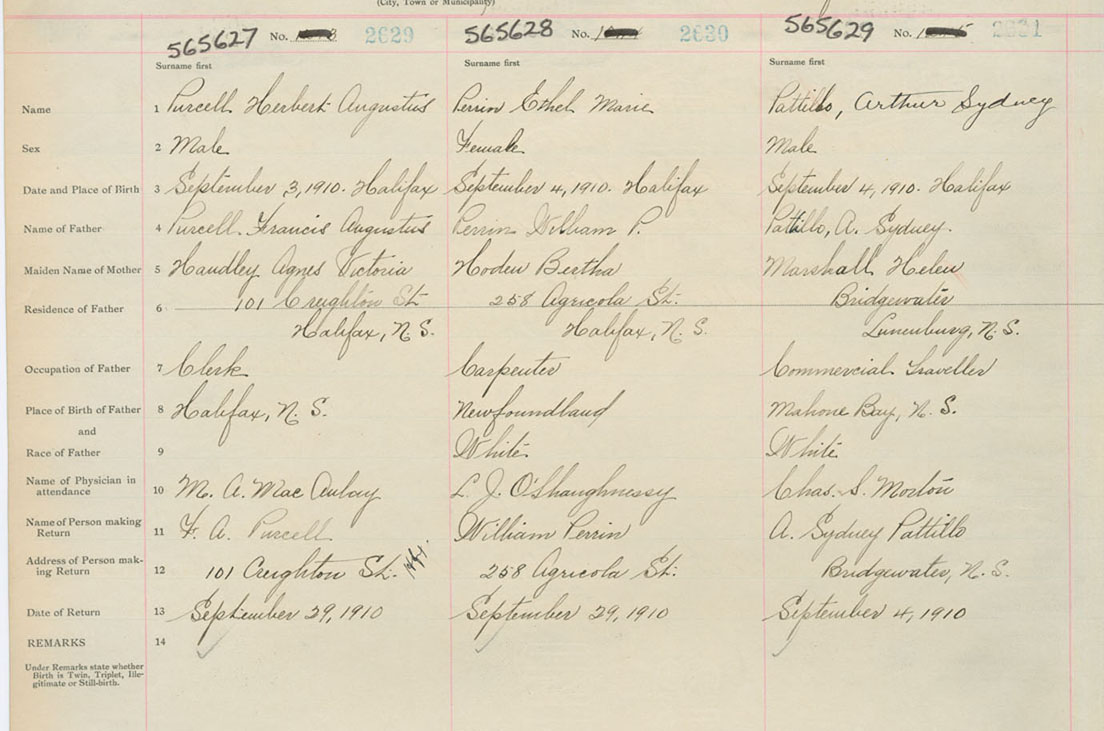 (City, Town or Municipality)
565627 No. 2629 565628 No. 2630 565629 No. 2631
Surname first Surname first Surname first
Name 1 Purcell Herbert Augustus Perrin Ethel Marie Pattillo, Arthur Sydney
Sex 2 Male Female Male
Date and Place of Birth 3 September 3, 1910. Halifax September 4, 1910. Halifax September 4, 1910. Halifax
Name of Father 4 Purcell. Francis Augustus Perrin William P. Pattillo, A. Sydney.
Maiden Name of Mother 5 Handley Agnes Victoria Hoden Bertha Marshall Helen
101 Creighton St. 258 Agricola St. Bridgewater
Residence of Father 6
Halifax, N. S. Halifax, N. S. Lunenburg, N. S.
Occupation of Father 7 Clerk Carpenter Commercial Traveller
Place of Birth of Father 8 Halifax, N. S. Newfoundland Mahone Bay, N. S.
and
Race of Father 9 White White
Name of Physician in
attendance 10 M. A. MacAulay L. J. O'Shaughnessy Chas. S. Morton
Name of Person making
Return 11 F. A. Purcell William Perrin A. Sydney Pattillo
Address of Person mak-
ing Return 12 101 Creighton St. 258 Agricola St. Bridgewater, N. S.
Date of Return 13 September 29, 1910 September 29, 1910 September 4, 1910
REMARKS 14
Under Remarks state whether
Birth is Twin, Triplet, Ille-
gitimate or Still-birth.